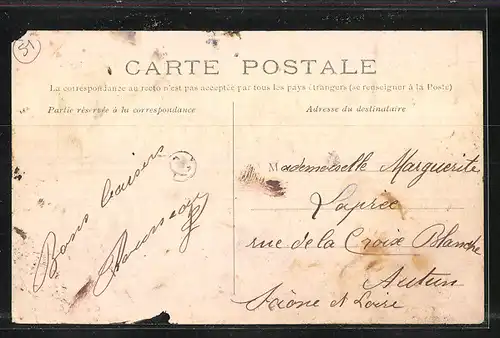 51
CARTE POSTALE
La correspondance au recto n'est pas acceptée par tous les pays étrangers (se renseigner à la Poste)
Partie réservée à la correspondance
Adresse du destinataire
Bons baisers
Mademoiselle Marguerite
rue de la Croix Blanche
Autun
Saône et Loire